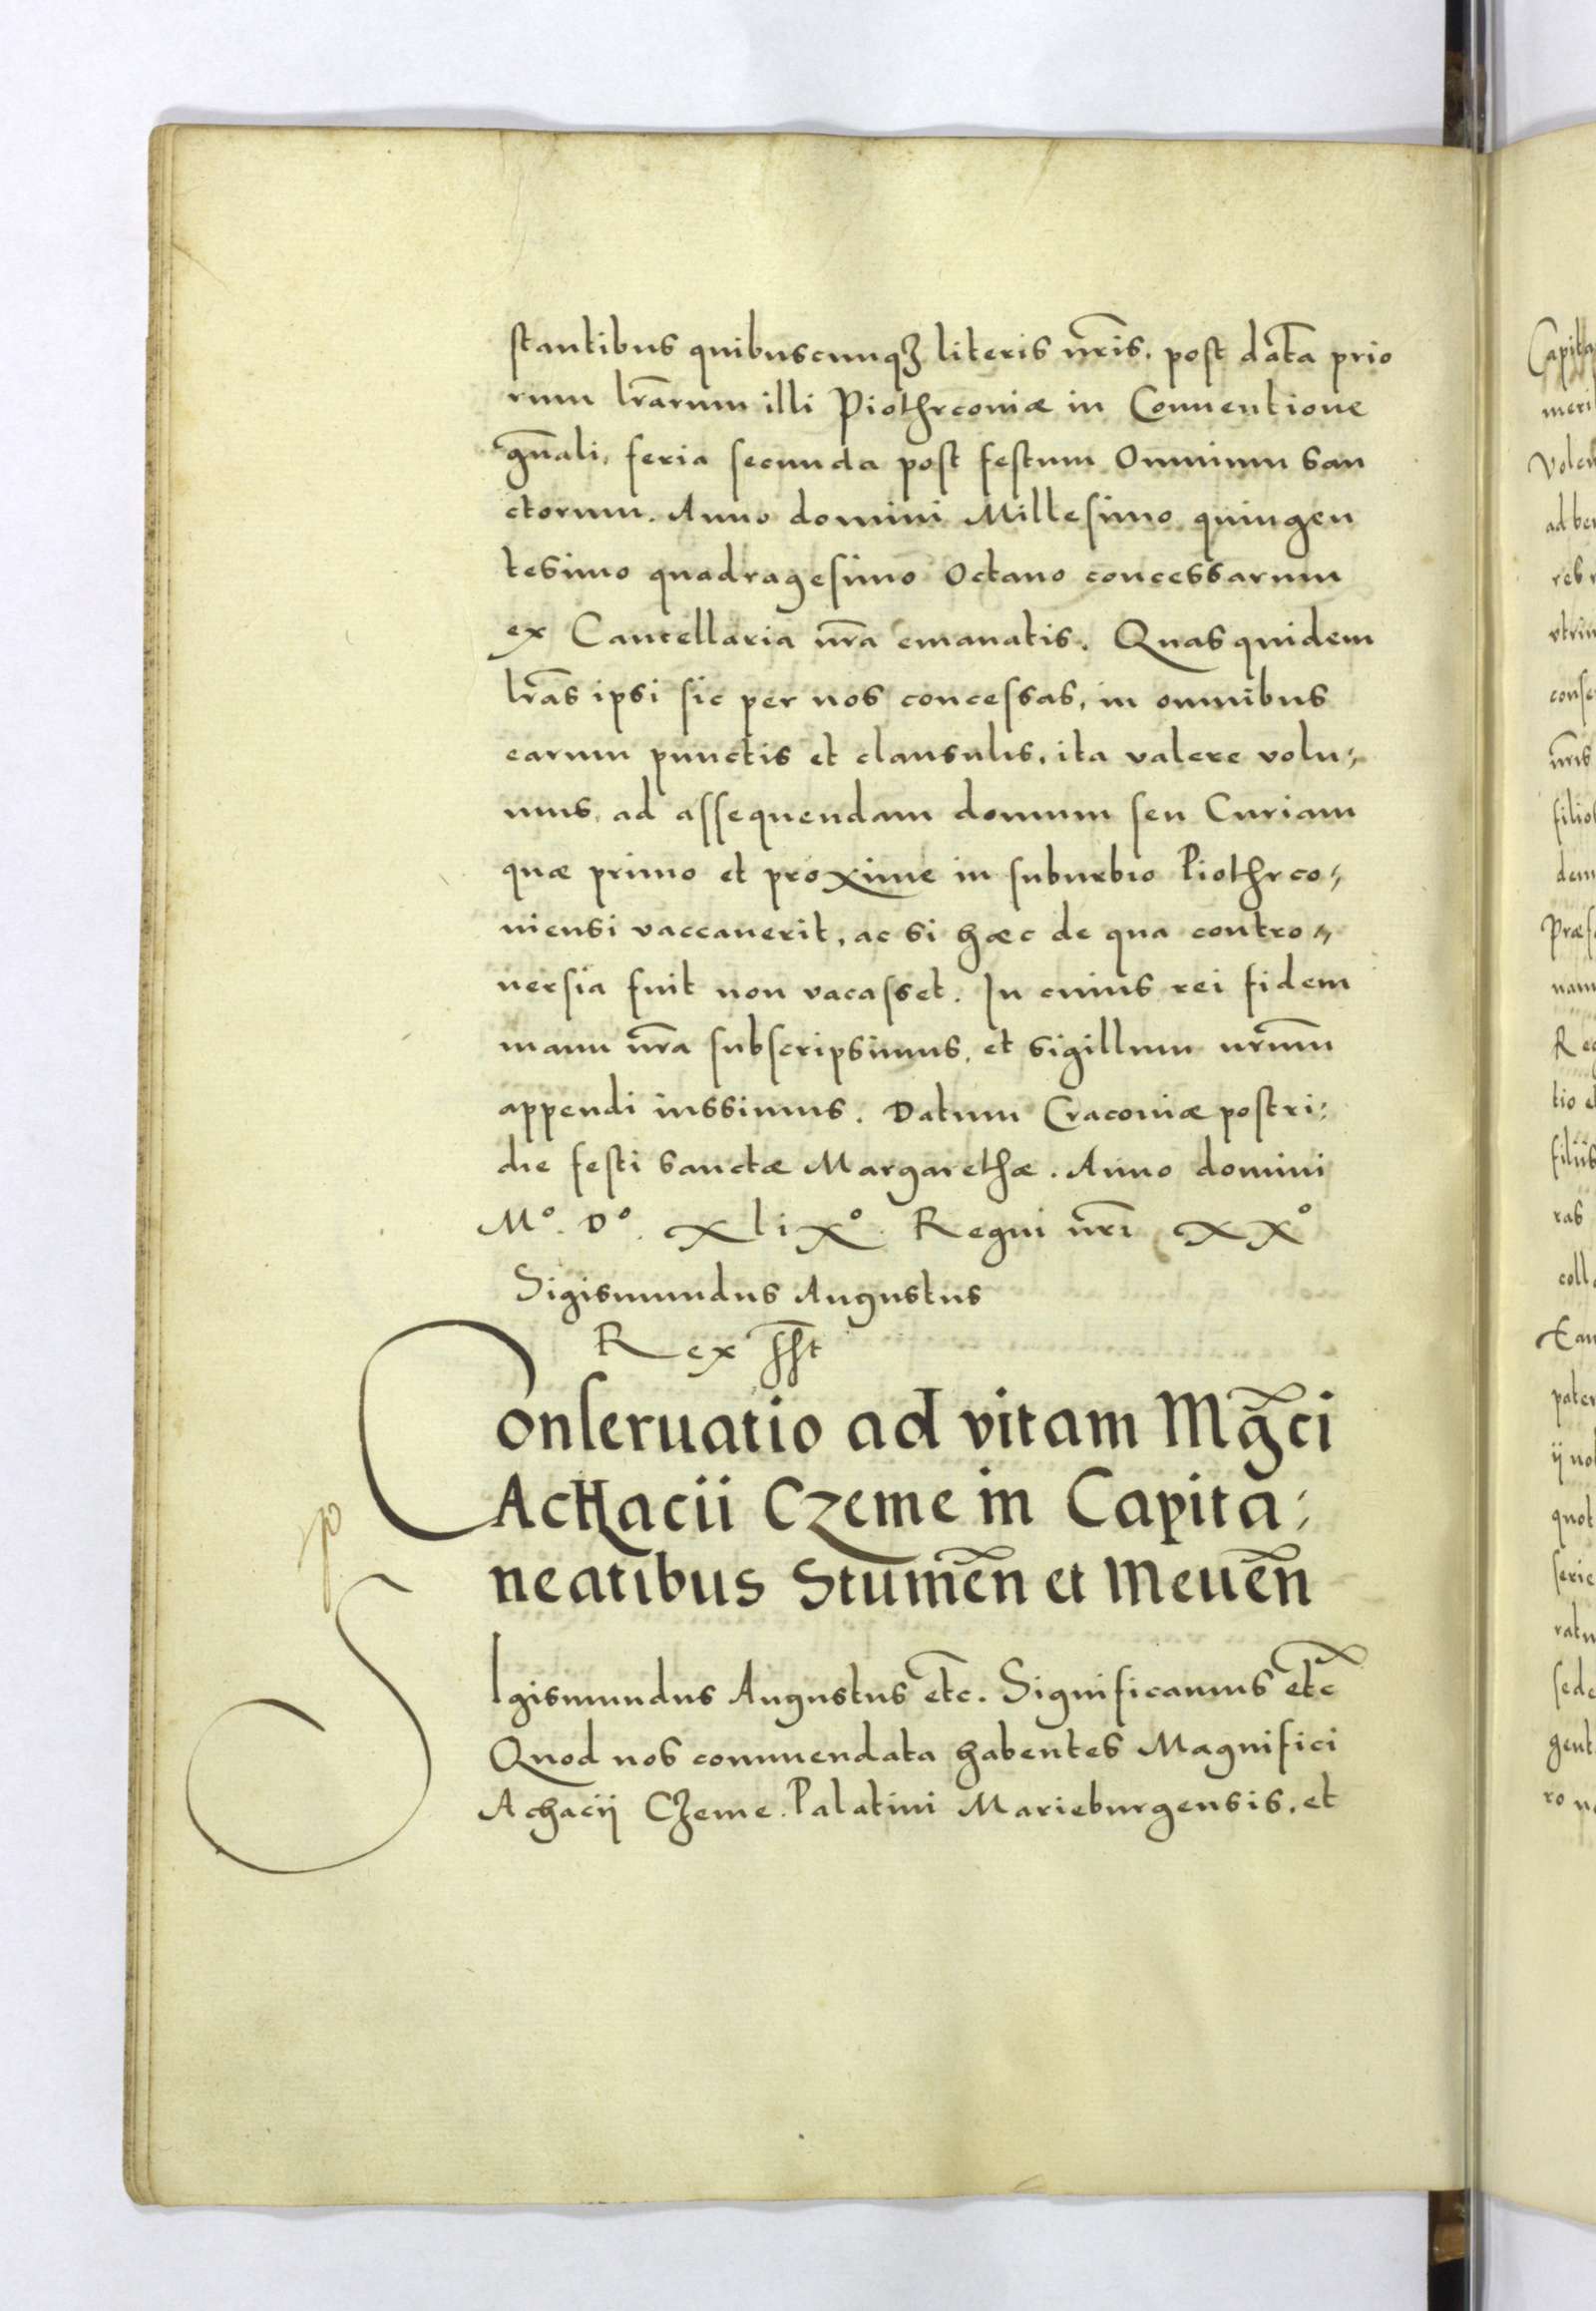 stantibus quibuscunqꝫ literis nr̃is. post data prio
rum lr̃arum illi Piothrconiæ in Conuentione
gñali, feria secunda post festum Omnium San
ctorum. Anno domini Millesimo quingen
tesimo quadragesimo Octauo concessarum
ex Cancellaria nr̃a emanatis. Quas quidem
lr̃as ipsi sic per nos concessas, in omnibus
earum punctis et clausulis, ita valere volu⸗
mus, ad assequendam domum seu Curiam
quæ primo et proxime in suburbio Piothrco⸗
niensi vaccauerit, ac si hæc de qua contro⸗
uersia fuit non vacasset. In cuius rei fidem
manu nr̃a subscripsimus, et sigillum nr̃um
appendi iussimus. Datum Cracouiæ postri⸗
die festi Sanctæ Margarethæ. Anno domini
Mº. Dº. xlixº. Regni nr̃i xxº
Sigismundus Augustus
Rex sst
Conseruatio ad vitam Mgc̃i
Achacii Czeme in Capita⸗
neatibus Stumeñ et Meueñ
SIgismundus Augustus etc. Significamus etc
Quod nos commendata habentes Magnifici
Achacij Czeme. Palatini Marieburgensis, et
Capita
meri
Volen
ad be
reb
vtrin
conse
nr̃is
filio
dem
Præs
nam
Reg
tio e
filiis
ras
coll
Ean
pater
ij no
quot
serie
ratu
sede
gent
ro n